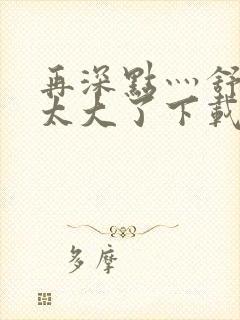 再深點灬舒
太大了下載
多摩